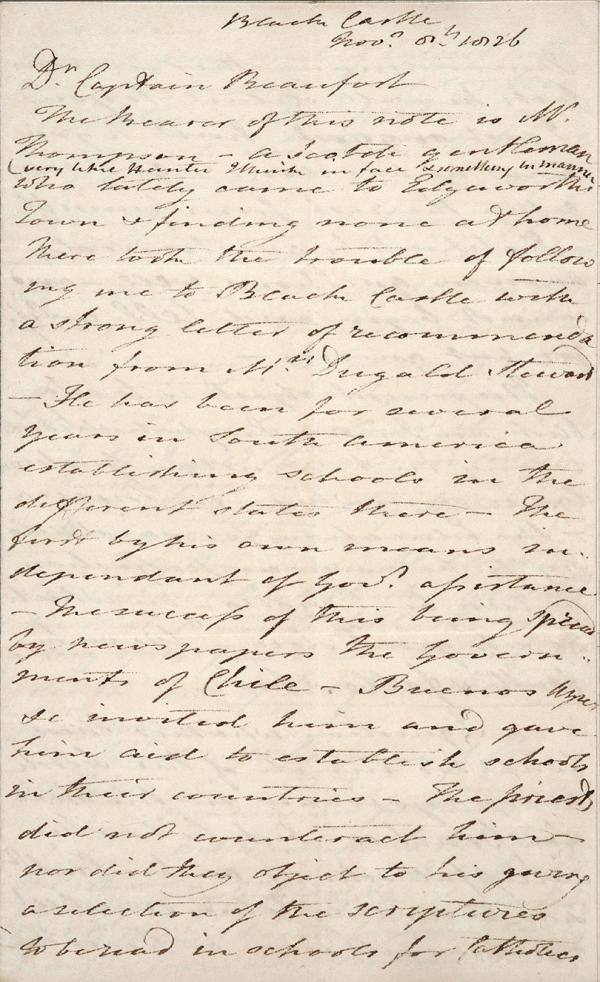 Black Castle
Nov.r 8th 1826
Dr Captain Beaufort
The Bearer of this note is Mr.
Thompson – a Scotch gentleman
(very like Hunter I think in face & something in manner
who lately came to Edgeworths
Town & finding none at home
there took the trouble of follow
ing me to Black Castle with
a strong letter of recommenda
tion from Mrs Dugald Stewart
– He has been for several
years in South America
establishing schools in the
different states there – The
first by his own means in-
dependant of Govt. assistance
– The success of this being spread
by news papers the Govern-
ments of Chile – Buenos Ayres
&c invited him and gave
him aid to establish schools
in their countries – The priests
did not counteract him –
nor did they object to his giving
a selection of the scriptures
to be read in schools for Catholics